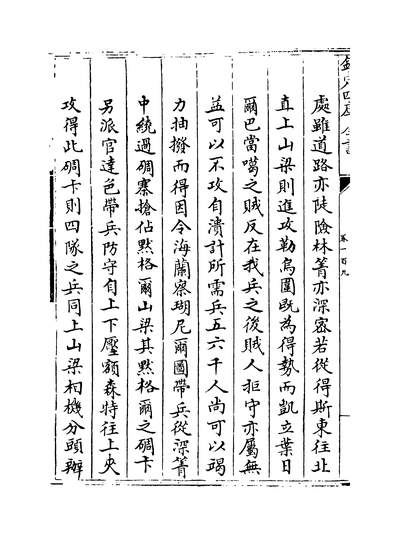 欽定四庫全書
卷一百九
處雖道路亦陡險林箐亦深密若從得斯東往北
直上山梁則進攻勒烏圍既為得勢而凱立葉日
爾巴當噶之賊反在我兵之後賊人拒守亦屬無
益可以不攻自潰計所需兵五六千人尚可以竭
力抽撥而得因令海蘭察瑚尼爾圖帶兵從深箐
中繞過碉寨搶佔默格爾山梁其默格爾之碉卡
另派官達色帶兵防守自上下壓額森特往上夾
攻得此碉卡則四隊之兵同上山梁相機分頭辦